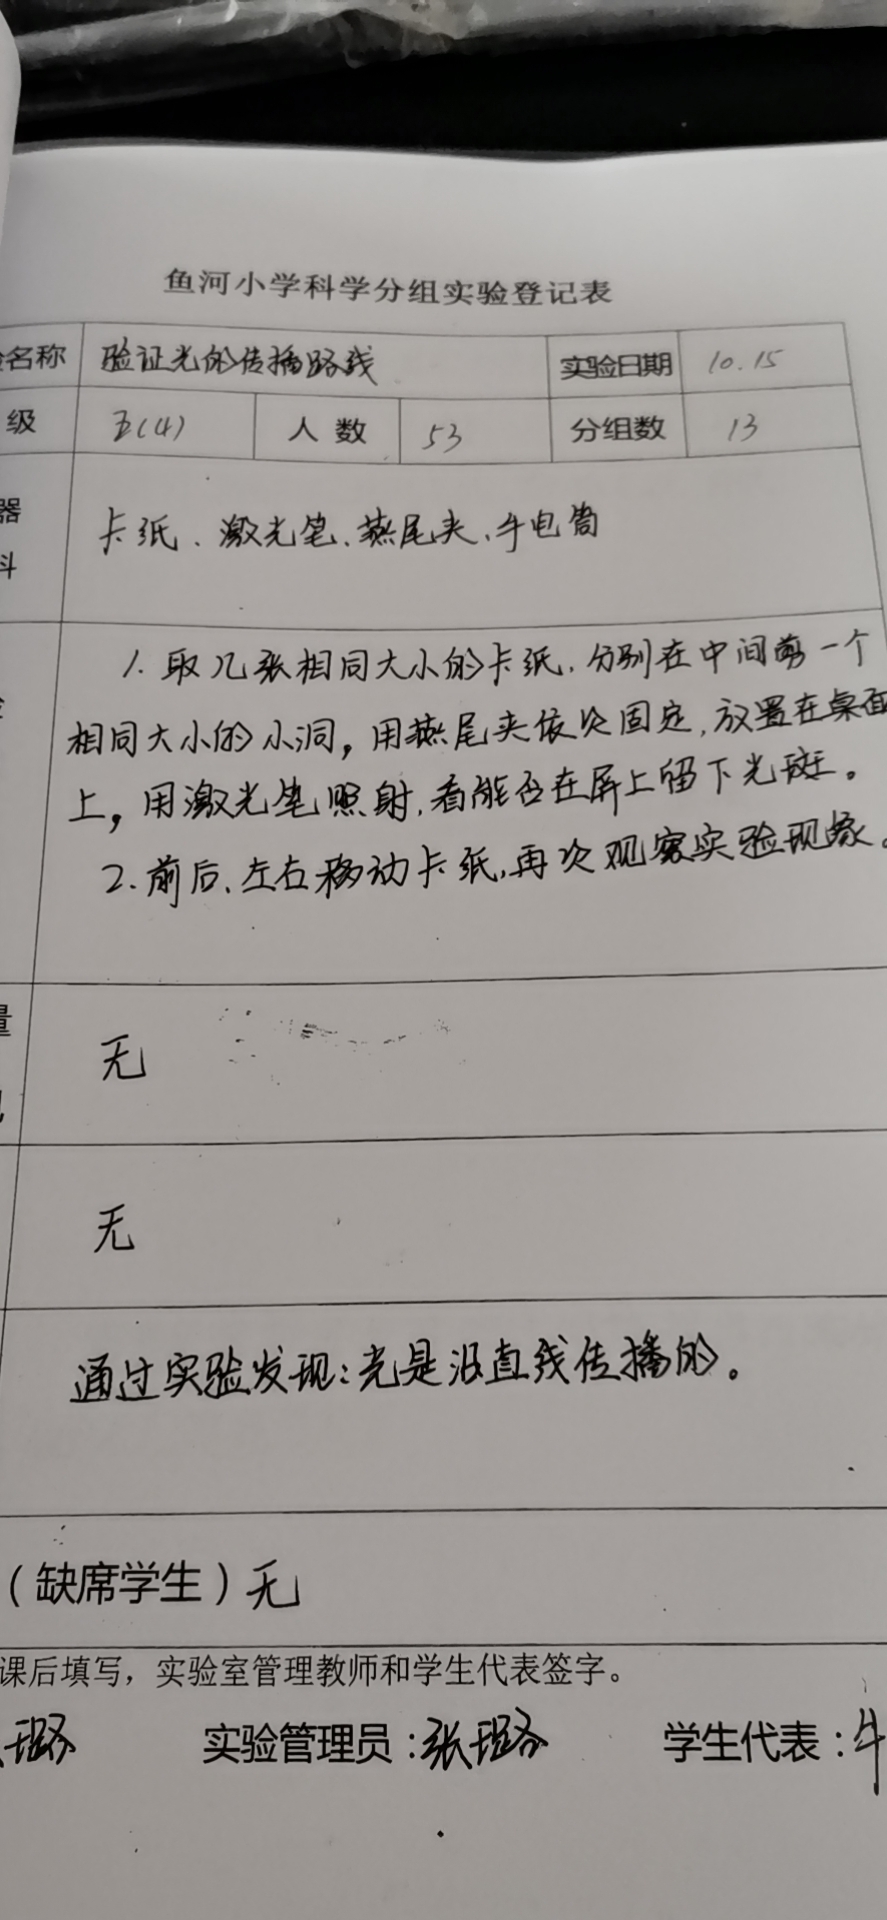 鱼河小学科学分组实验登记表
名称 验证光的传播路线 实验日期 10.15
级 五(4) 人数 53 分组数 13
器
卡纸、激光笔、燕尾夹、手电筒
1. 取几张相同大小的卡纸,分别在中间剪一个
相同大小的小洞,用燕尾夹依次固定,放置在桌面
上,用激光笔照射,看能否在屏上留下光斑。
2. 前后、左右移动卡纸,再次观察实验现象。
量
无
无
通过实验发现:光是沿直线传播的。
(缺席学生)无
课后填写,实验室管理教师和学生代表签字。
实验管理员:张璐 学生代表: